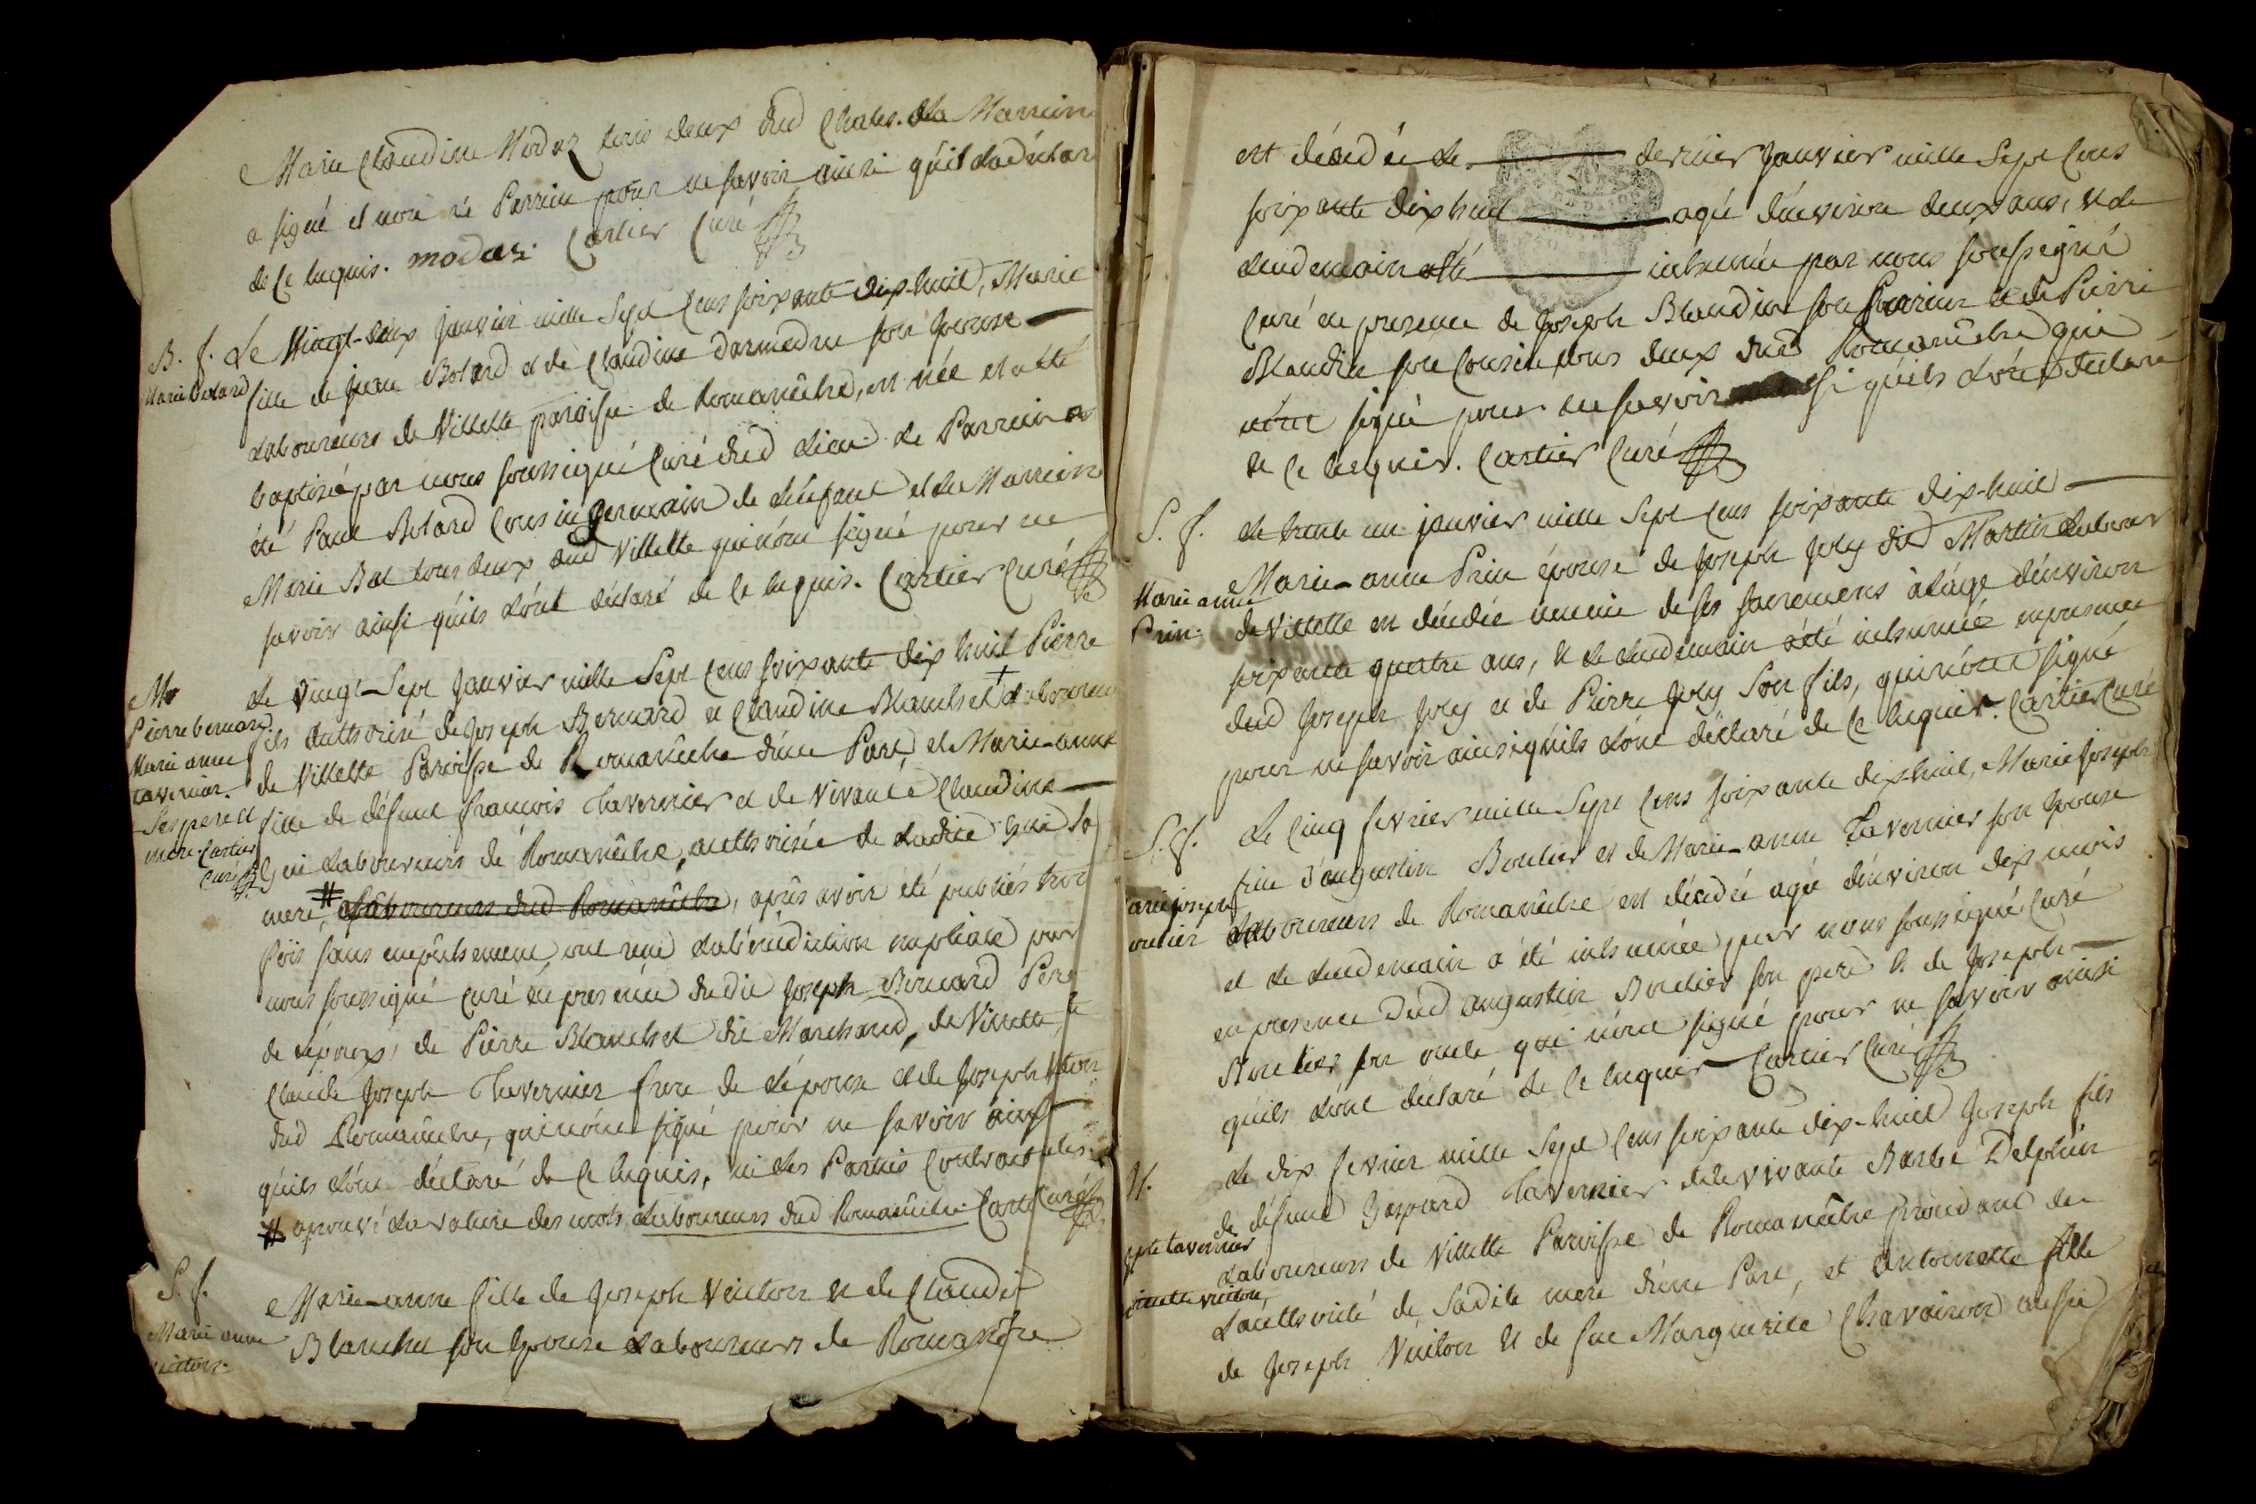 Marie Claudine Modaz tous deux dud Chales. La Marraine
a signé et non le Parrain pour ne savoir ainsi qu'il la déclaré
de ce enquis. modaz. Cartier Curé
B. f.
Marie Bolard
Le Vingt-deux janvier mille Sept Cens soixante dix-huit, Marie
fille de Jean Bolard et de Claudine Darmedru son Epouse
laboureurs de Villette paroisse de Romanêche, est née et a été
baptisée par nous soussigné Curé dud Lieu. Le Parrain a
été Paul Bolard Cousin germain de l'enfant et la Marraine
Marie Bal tous deux dud Villette qui n'ont signé pour ne
savoir ainsi qu'ils l'ont déclaré de ce enquis. Cartier Curé
M.
Pierre bernard
Marie anne
tavernier.
Ses pere et
mere Cartier
Curé
Le Vingt-Sept Janvier mille Sept Cens soixante dix huit Pierre
fils authorisé de Joseph Bernard et Claudine Blanchet + laboureurs
de Villette Paroisse de Romanêche d'une Part, et Marie-anne
fille de défunt françois Tavernier et de Vivante Claudine
Gui laboureurs de Romanêche, authorisée de ladite Gui Sa
mere, # laboureurs dud Romanêche, après avoir été publiés trois
fois sans empêchement, ont reçu la bénédiction nuptiale par
nous soussigné Curé en presence dudit Joseph Bernard Pere
de l'époux, de Pierre Blanchet dit Marchand, de Villette, de
Claude Joseph Tavernier frere de l'épouse et de Joseph Vuiton
dud Romanêche, qui n'ont signé pour ne savoir ainsi
qu'ils l'ont déclaré de ce enquis, ni les Parties Contractantes.
# aprouvé la rature des mots laboureurs dud Romanêche. Cartier Curé
S. f.
Marie anne
vuiton.
Marie-anne fille de Joseph Vuiton et de Claudine
Blanchet son Epouse laboureurs de Romanêche
est décedée le dernier Janvier mille Sept Cens
soixante dix huit agée d'environ deux ans, et le
lendemain a été inhumée par nous soussigné
Curé en presence de Joseph Blandin son Parrain et de Pierre
Blandin son Cousin tous deux dud Romanêche qui
n'ont signé pour ne savoir si qu'ils l'ont déclaré
de ce enquis. Cartier Curé
S. f.
Marie anne
Prin.
Le trente un janvier mille Sept Cens soixante dix-huit
Marie-anne Prin épouse de Joseph Joly dit Martin laboureur
de Villette est décédée munie de ses sacremens à l'âge d'environ
soixante quatre ans, et le lendemain a été inhumée en presence
dud Joseph Joly et de Pierre Joly Son fils, qui n'ont signé
pour ne savoir ainsi qu'ils l'ont déclaré de ce enquis. Cartier Curé
S. f.
arie joseph
outier
Le Cinq fevrier mille Sept Cens soixante dix-huit, Marie Joseph
fille d'augustin Boutier et de Marie-anne Tavernier son Epouse
laboureurs de Romanêche est décedée agée d'environ dix mois
et le lendemain a été inhumée par nous soussigné Curé
en presence dud augustin Boutier son pere et de Joseph
Boutier son oncle qui n'ont signé pour ne savoir ainsi
qu'ils l'ont déclaré de ce enquis Cartier Curé
M.
seph tavernier
toinette vuiton
Le dix fevrier mille Sept Cens soixante dix-huit Joseph fils
de défunt Gaspard Tavernier et de vivante Barbe Delphin
laboureurs de Villette Paroisse de Romanêche procédant de
l'authorité de Sadite mere d'une Part, et antoinette fille
de Joseph Vuiton et de fue Marguerite Chavairon aussi